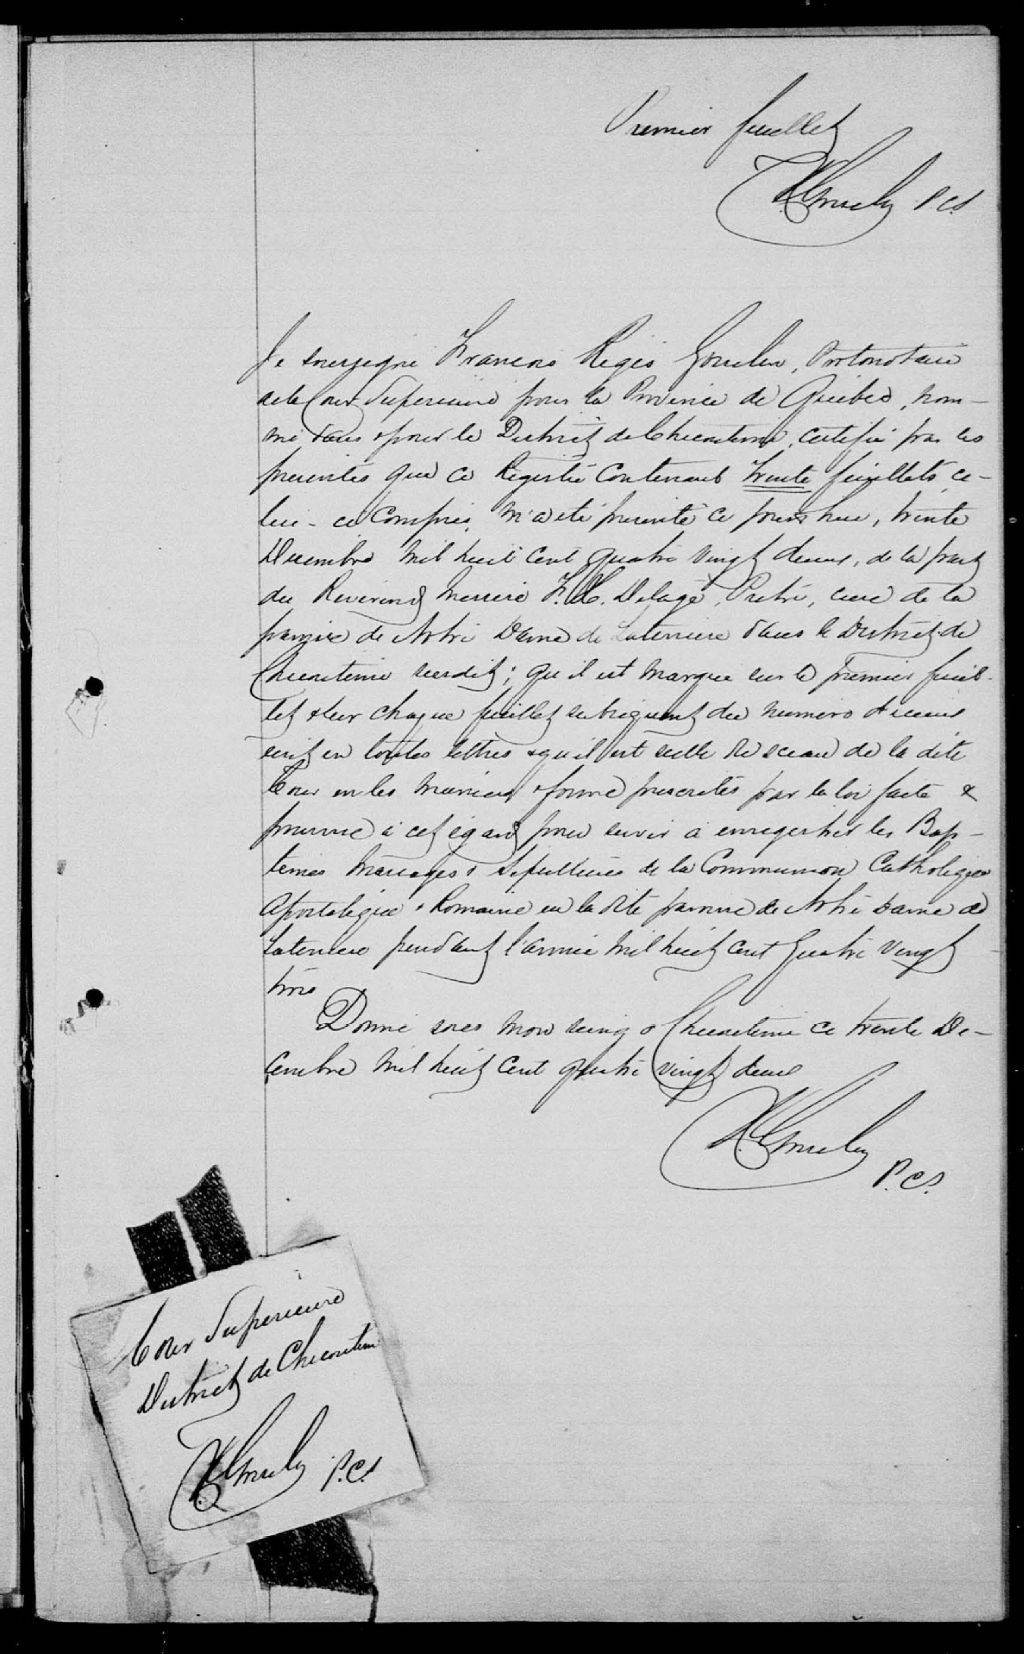 Premier feuillet
FRGosselin PCS
Je soussigné Francois Régis Gosselin, Protonotaire
de la Cour Supérieure pour la Province de Québec, nom-
mé dans & pour le District de Chicoutimi, certifie par les
présentes que ce Régistre contenant trente feuillets, ce-
lui-ci compris, m'a été présenté ce jourd'hui, trente
Décembre mil huit cent quatre vingt deux, de la part
du Révérend Messire F.X. Delage, Prêtre, curé de la
paroisse de Notre Dame de Laterriere dans le District de
Chicoutimi susdit; qu'il est marqué sur le premier feuil-
let & sur chaque feuillet subséquent du numéro
écrit en toutes lettres & qu'il est scellé du sceau de la dite
Cour en les manière & forme prescrites par la loi faite &
pourvue à cet égard pour servir à enregistrer les Bap-
têmes mariages & Sépultures de la Communion Catholique
Apostolique & Romaine en la dite paroisse de Notre Dame de
Laterriere pendant l'année mil huit cent quatre vingt
trois
Donné sous mon seing à Chicoutimi ce trente Dé-
cembre mil huit cent quatre vingt deux
FRGosselin
P.C.S.
Cour Supérieure
District de Chicoutimi
FRGosselin P.C.S